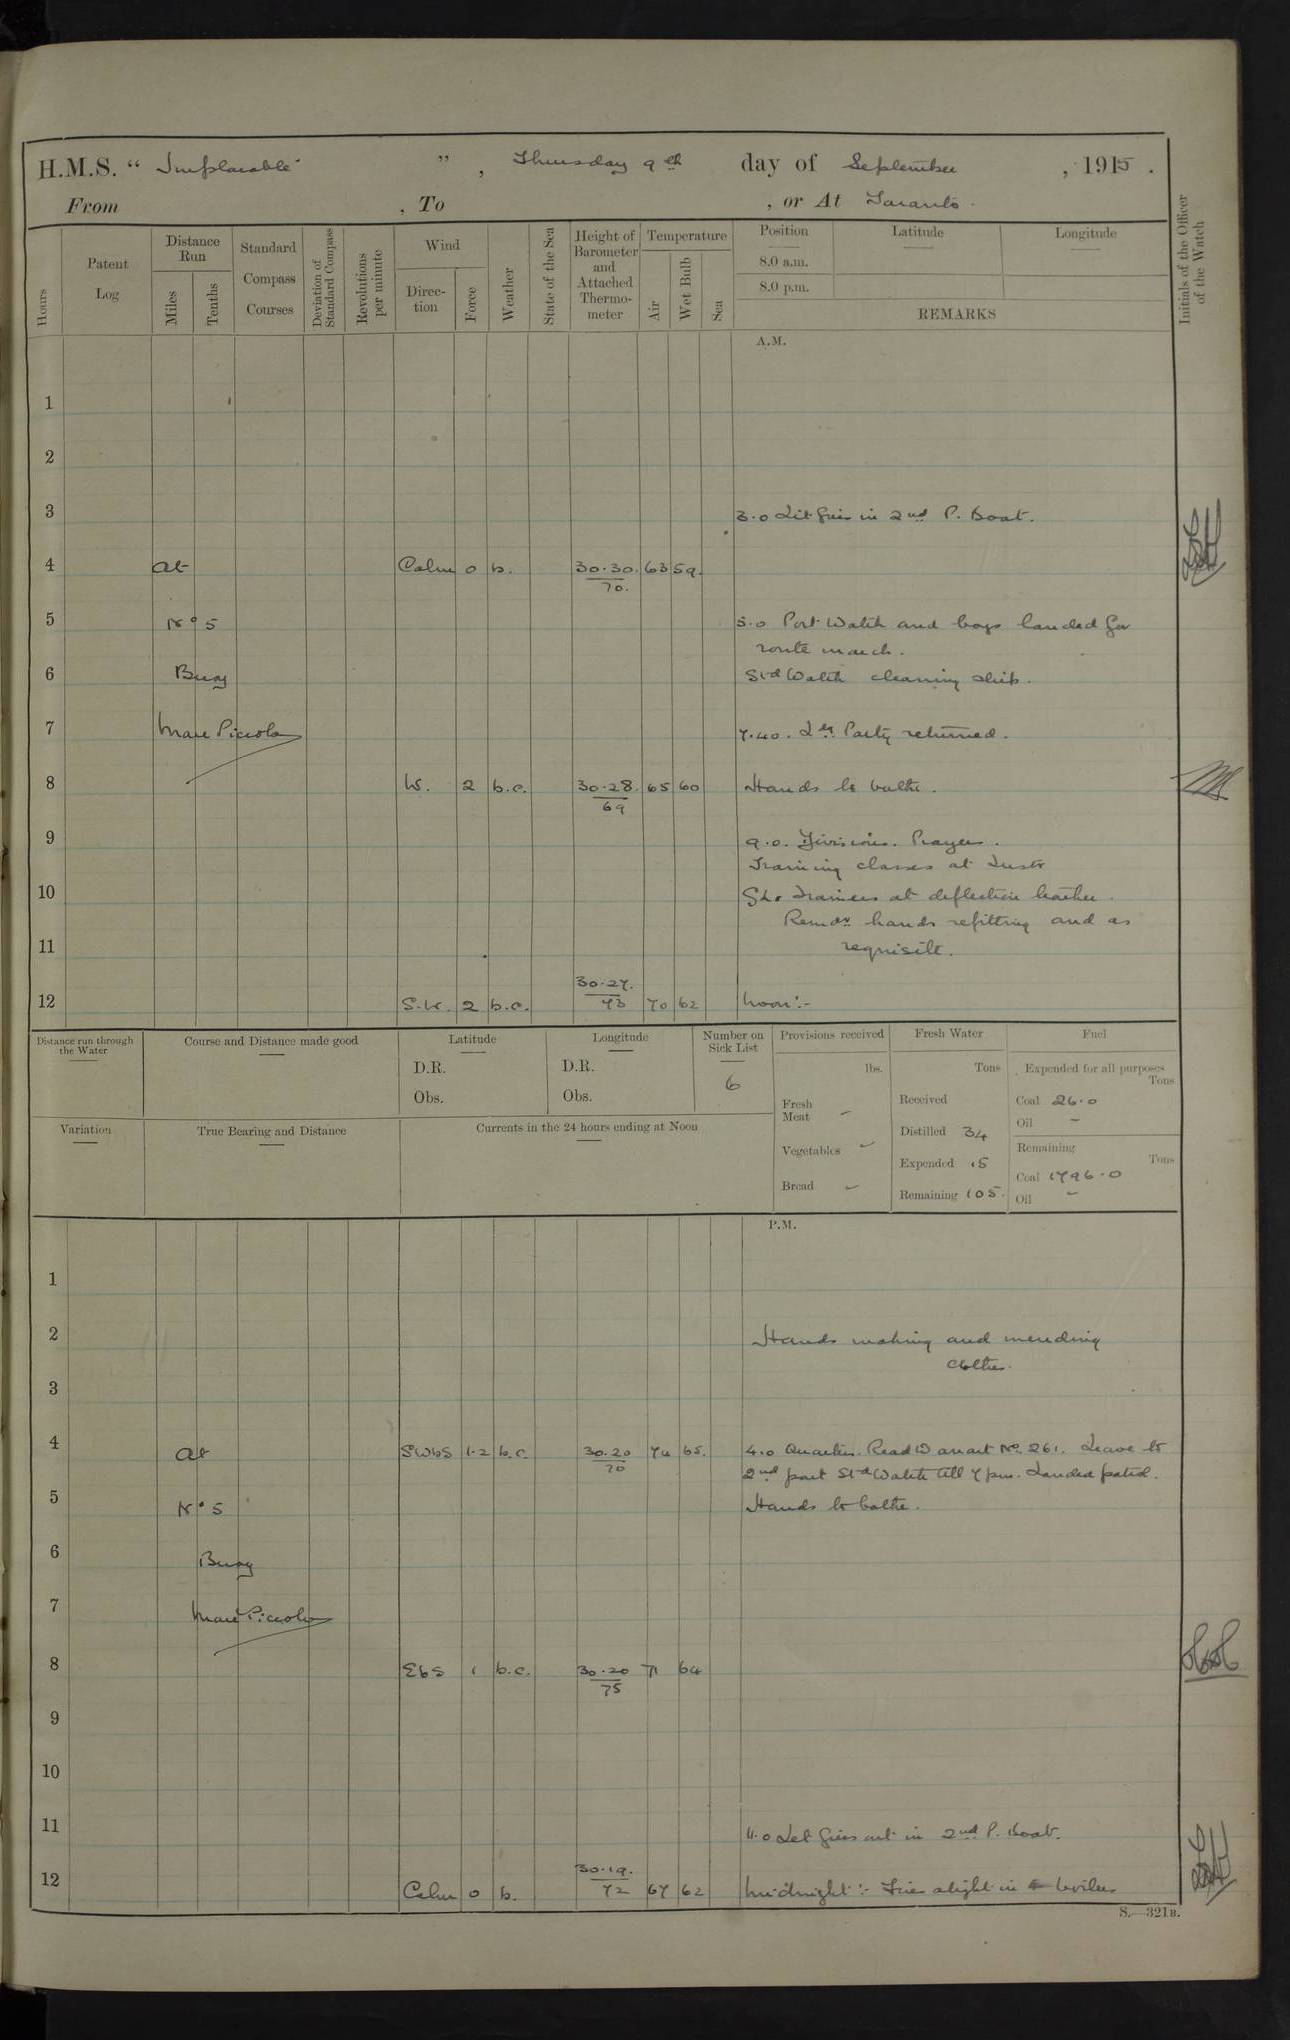 H.M.S. “ Implacable ” , Thursday 9th day of September , 1915 .
From , To , or At Taranto .
Hours
Patent Log
Distance Run
Miles
Tenths
Standard Compass Courses
Deviation of Standard Compass
Revolutions per minute
Wind
Direc-tion
Force
Weather
State of the Sea
Height of Barometer and Attached Thermo-meter
Temperature
Air
Wet Bulb
Sea
Position
8.0 a.m.
8.0 p.m.
Latitude
Longitude
REMARKS
Initials of the Officer of the Watch
A.M.
1
2
3 3.0 Lit fires in 2nd P. Boat.
4 At Calm 0 b. 30.30. 63 59.
70.
5 No 5 5.0 Port Watch and boys landed for
route march.
6 Buoy Std Watch cleaning ship.
7 Mare Piccolo 7.40. Ldg Party returned.
8 W. 2 b.c. 30.28. 65 60 Hands to bathe.
69
9 9.0. Divisions. Prayers.
Training classes at Instr
10 trainers at deflection teacher.
Remdr hands refitting and as
11 requisite.
30.27.
12 S.W. 2 b.c. 73 70 62 Noon:-
Distance run through the Water
Course and Distance made good
Latitude
D.R.
Obs.
Longitude
D.R.
Obs.
Number on Sick List
6
Provisions received
lbs.
Fresh Meat -
Vegetables -
Bread -
Fresh Water
Tons
Received
Distilled 34
Expended 15
Remaining 105.
Fuel
Expended for all purposes
Tons
Coal 26.0
Oil -
Remaining
Tons
Coal 1796.0
Oil -
Variation
True Bearing and Distance
Currents in the 24 hours ending at Noon
P.M.
1
2 Hands making and mending
clothes.
3
4 At SWbS 1.2 b.c. 30.20 74 65. 4.0 Quarters. Read Warrant No. 261. Leave to
70 2nd part Std Watch till 7 pm. Landed patrol.
5 No 5 Hands to bathe.
6 Buoy
7 Mare Piccolo
8 EbS 1 b.c. 30.20 71 64
75
9
10
11 11.0 Let fires out in 2nd P. Boat.
30.19.
12 Calm 0 b. 72 67 62 Midnight:- Fires alight in boilers
S.—321B.